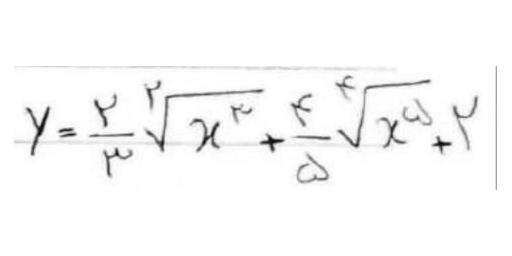 y = ۲/۳ ²√(x^۳) + ۴/۵ ⁴√(x^۵) + ۲